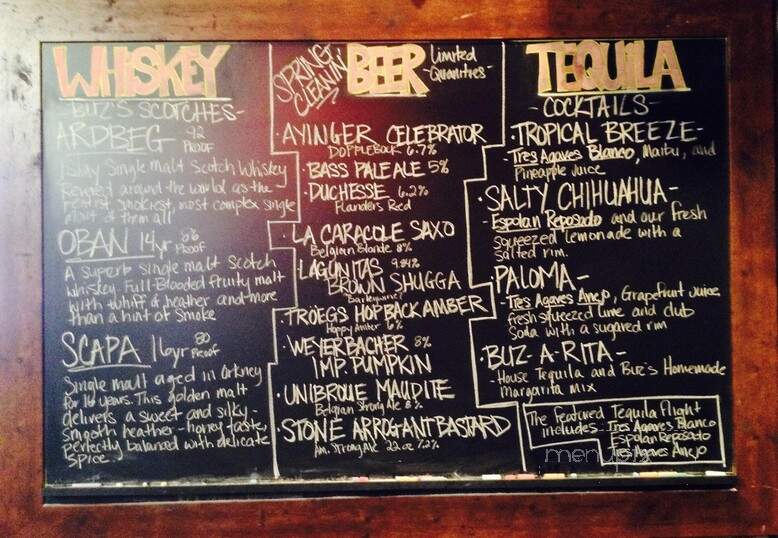 WHISKEY
BUZ'S SCOTCHES-
ARDBEG 92 PROOF
Islay Single Malt Scotch Whiskey
Revered around the world as the
peatiest smokiest, most complex single
malt of them all
OBAN 14yr 86 PROOF
A superb single malt scotch
whiskey. Full-Blooded fruity malt
with whiff of heather and more
than a hint of smoke
SCAPA 16yr 80 PROOF
Single malt aged in Orkney
for 16 years. This golden malt
delivers a sweet and silky-
smooth heather-honey taste,
perfectly balanced with delicate
spice.
SPRING CLEANIN'
BEER Limited
-Quantities-
· AYINGER CELEBRATOR
DOPPLEBOCK 6.7%
· BASS PALE ALE 5%
· DUCHESSE 6.2%
Flanders Red
· LA CARACOLE SAXO
Belgian Blonde 8%
· LAGUNITAS 9.84%
BROWN SHUGGA
"Barleywine?"
· TRÖEGS HOPBACK AMBER
Hoppy Amber 6%
· WEYERBACHER 8%
IMP. PUMPKIN
· UNIBROUE MAUDITE
Belgian Strong Ale 8%
· STONE ARROGANT BASTARD
Am. Strong Ale 22oz 7.2%
TEQUILA
-COCKTAILS-
· TROPICAL BREEZE-
Tres Agaves Blanco, Malibu, and
Pineapple Juice
· SALTY CHIHUAHUA-
- Espolan Reposado and our fresh
squeezed lemonade with a
salted rim.
· PALOMA-
- Tres Agaves Anejo, Grapefruit juice,
fresh squeezed lime and club
Soda with a sugared rim
· BUZ-A-RITA-
- House Tequila and Buz's Homemade
margarita mix
The Featured Tequila Flight
includes: Tres Agaves Blanco
Espolan Reposado
Tres Agaves Anejo
menupix